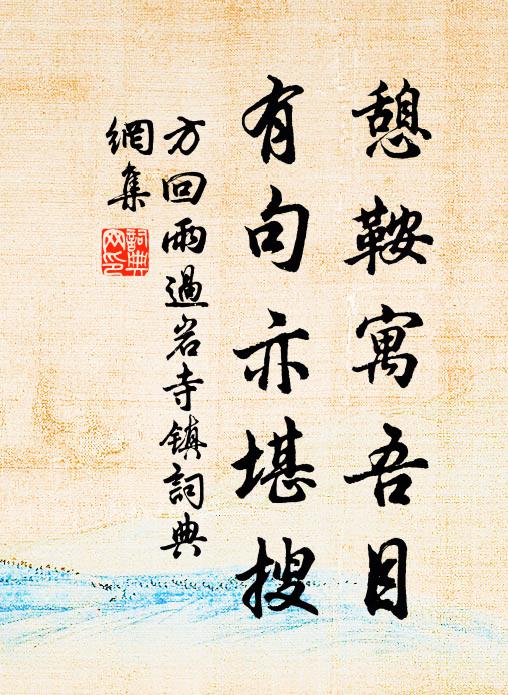 憩鞍寓吾目
有句亦堪搜
方回雨過岩寺鎮詞典
網集
詞典
網印